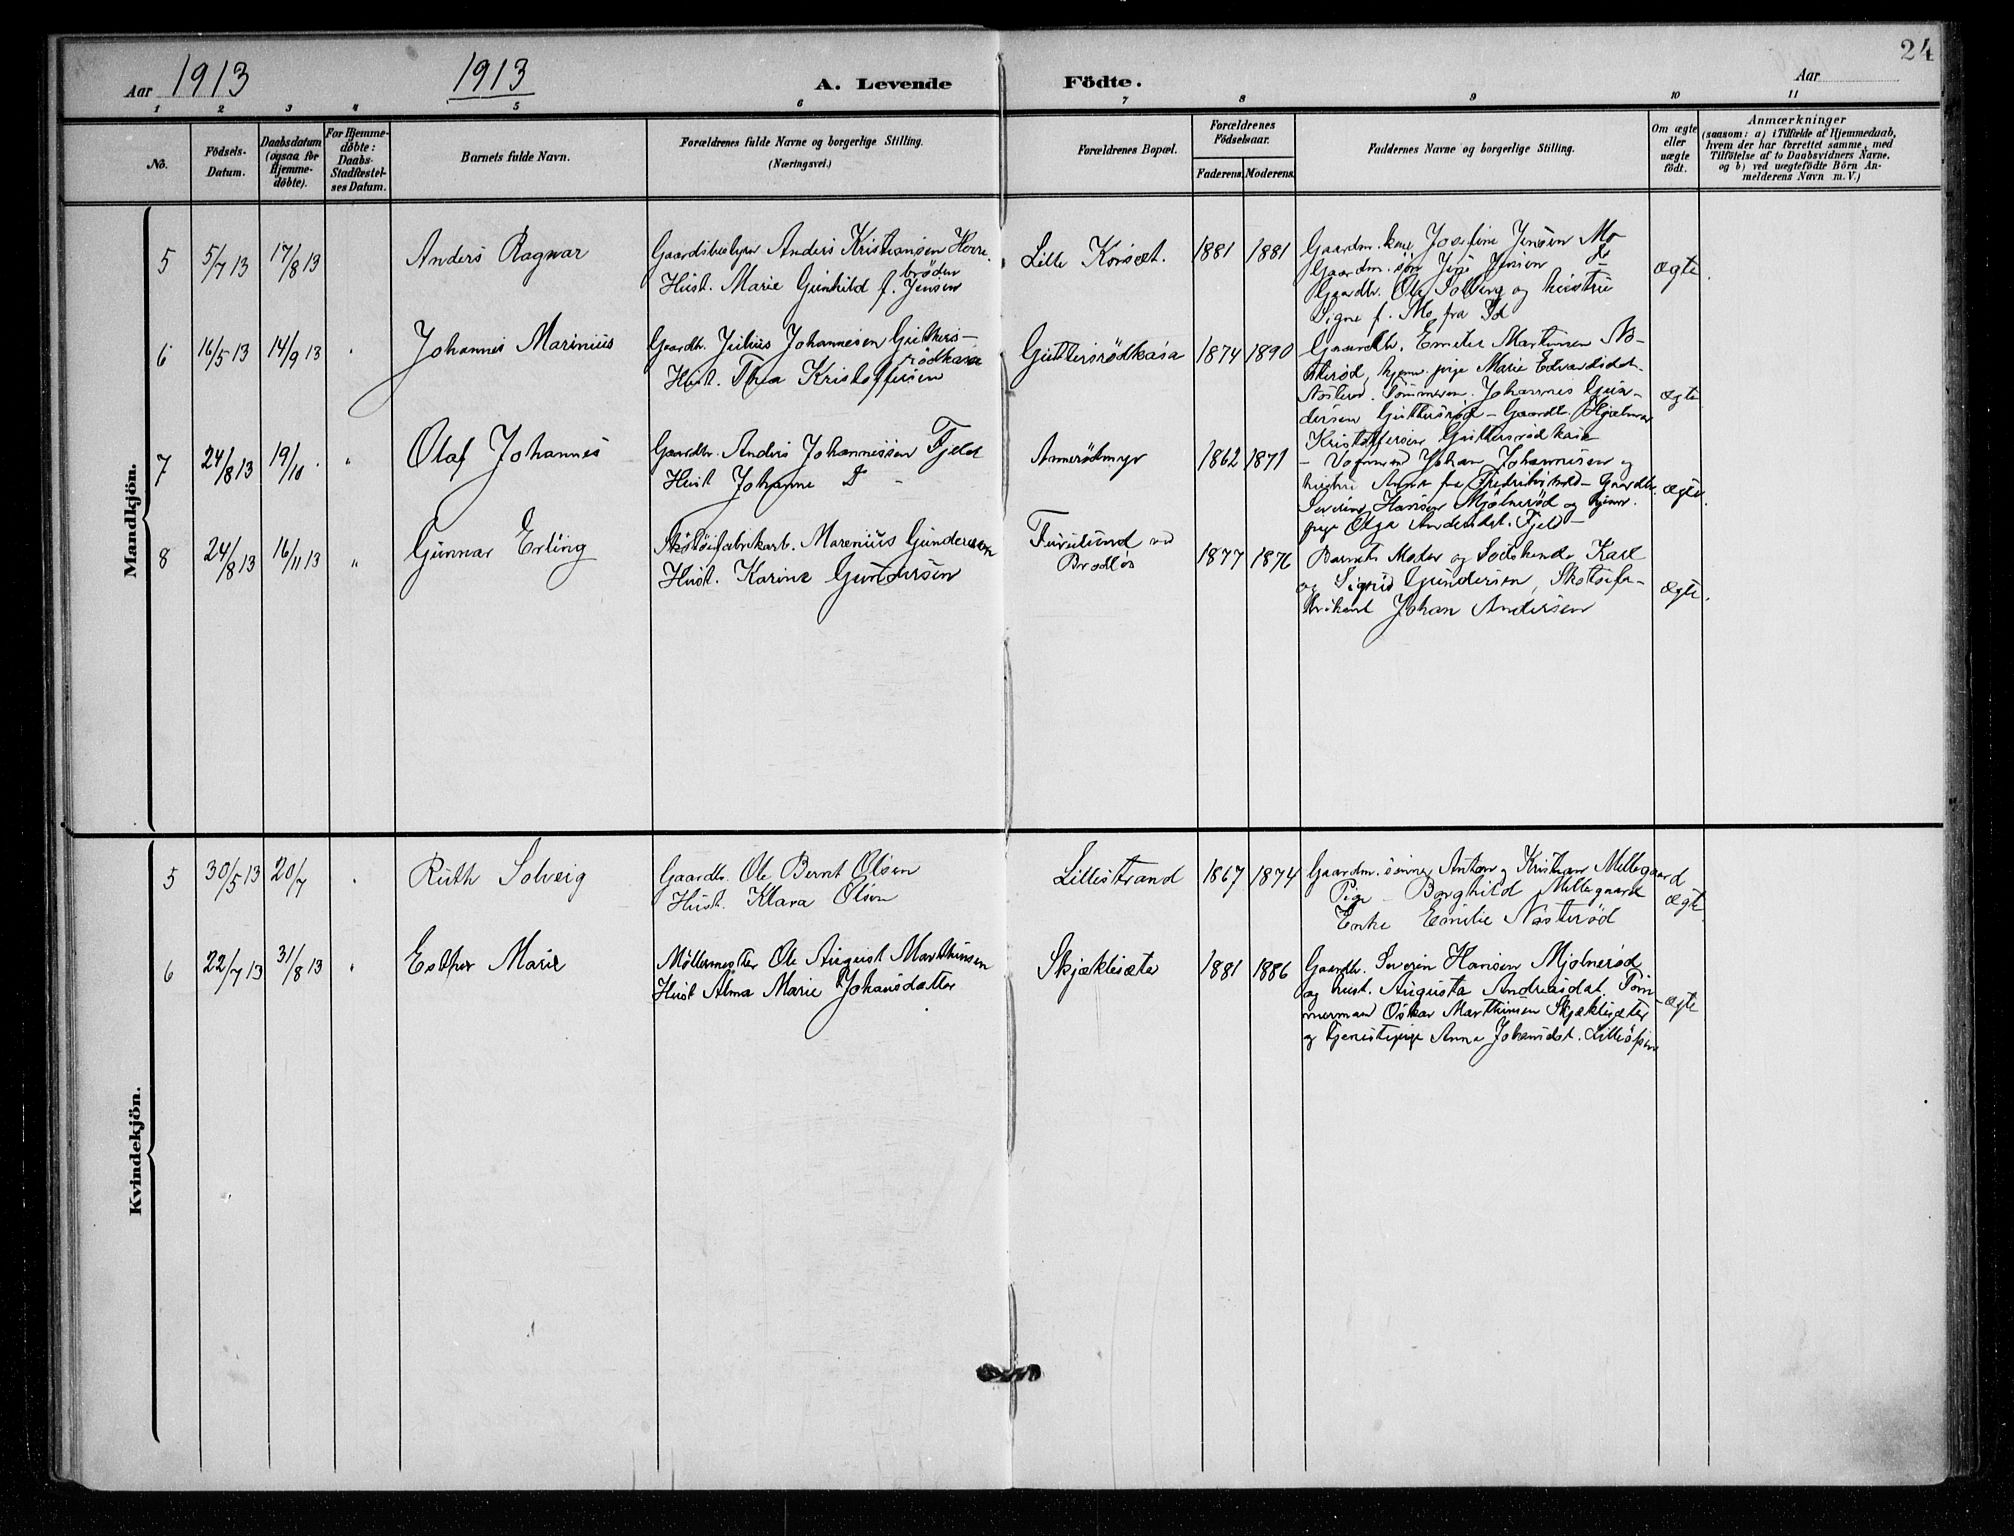 24
Aar 1913
1913
A. Levende Födte.
Aar
1 2 3 4 5 6 7 8 9 10 11
No.
Födsels-Datum.
Daabsdatum (ogsaa for Hjemme-döbte).
For Hjemme-döbte: Daabs-Stadfæstel-ses Datum.
Barnets fulde Navn.
Forældrenes fulde Navne og borgerlige Stilling.
(Næringsvei.)
Forældrenes Bopæl.
Forældrenes Födselsaar.
Faderens. Moderens.
Faddernes Navne og borgerlige Stilling.
Om ægte eller uægte födt.
Anmærkninger
(saasom: a) i Tilfælde af Hjemmedaab,
hvem der har forrettet samme, med
Tilföielse af to Daabsvidners Navne,
og b) ved uægtefödte Börn An-
melderens Navn m. V.)
Mandkjön.
5 5/7 13 17/8 13 Anders Ragnar
Gaardsbestyrer Anders Kristiansen Horre-
brøden
Hust. Marie Gunhild f. Jensen
Lille Korsæt. 1881 1881
Gaardm. kone Josefine Jensen Mo
Gaardm. søn Jens Jensen do
Gaardbr. Ole Solberg og hustru
Signe f. Mo fra Id
ægte.
6 16/5 13 14/9 13 Johannes Marinius
Gaardbr. Julius Johannesen Gutters-
rødkasa
Hust. Thea Kristoffersen
Guttersrødkasa 1874 1890
Gaardbr. Emeter Martinsen No-
sterød, hjem. pige Marie Edvardsdat.
Nosterød. Tømmerm. Johannes Gun-
dersen Guttersrød - Gaardbr. Hjalmar
Kristoffersen Guttersrødkasa
ægte
7 24/8 13 19/10 " Olaf Johannes
Gaardbr. Anders Johannessen Fjeld
Hust. Johanne D -
Annerødmyr 1862 1871
- Johan Johannesen og
hustru Anna fra Fredrikshald - Gaardbr.
Severin Hansen Mjølnerød og hjemv.
pige Olga Andersdat. Fjeld -
ægte
8 24/8 13 16/11 13 " Gunnar Erling
Skotøifabrikarb. Marenius Gundersen
Hust. Karine Gundersen
Furulund ved
Brødløs
1877 1876
Barnets Moder og Sødskende Karl
og Sigrid Gundersen, Skotøifa-
brikant Johan Andersen
ægte.
Kvindekjön.
5 30/5 13 20/7 Ruth Solveig
Gaardbr. Ole Bernt Olsen
Hust. Klara Olsen
Lillestrand 1867 1874
Gaardm. sønner Anton og Kristian Mellegaard
Pige - Borghild Mellegaard
Enke Emilie Nosterød
ægte
6 22/7 13 31/8 13 Esther Marie
Møllermester Ole August Marthinsen
Hust. Alma Marie Johansdatter
Skjæklesæter 1881 1886
Gaardbr. Severin Hansen Mjølnerød
og hust. Augusta Andreasdat. Tøm-
mermand Oskar Marthinsen Skjæklesæter
og Tjenestepige Anna Johansdat.
ægte